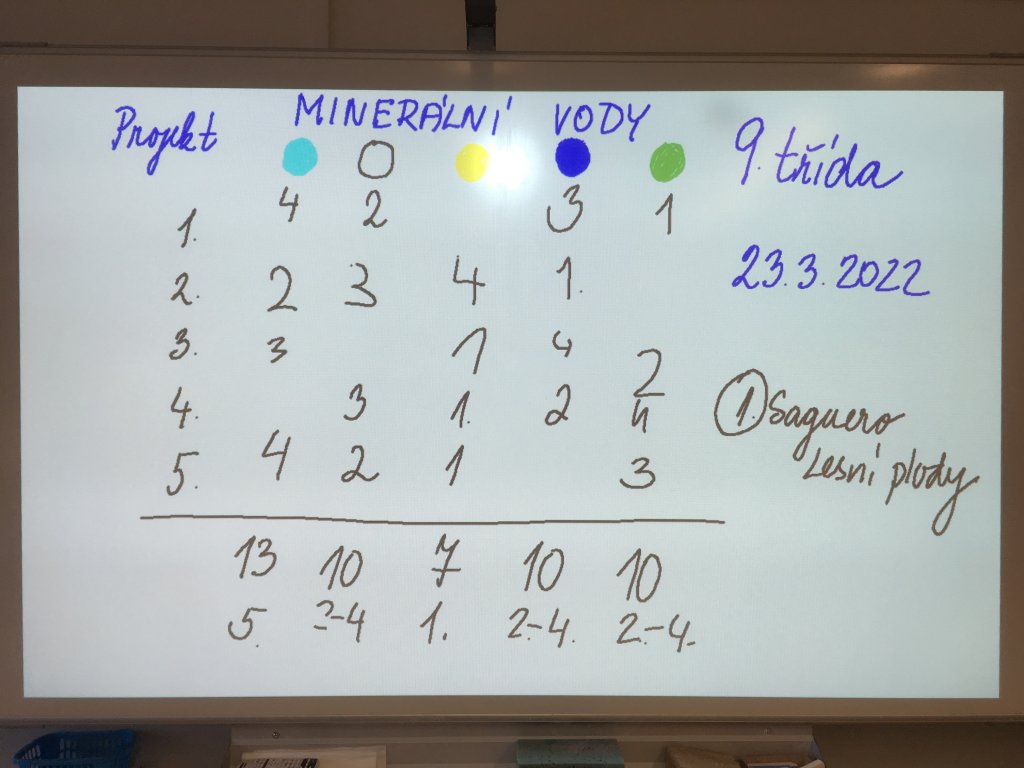 Projekt MINERÁLNÍ VODY 9. třída
1. 4 2 3 1
2. 2 3 4 1. 23.3.2022
3. 3 1 4 2
4. 3 1. 2 4 1. Saguero
5. 4 2 1 3 Lesní plody
13 10 7 10 10
5. 2-4 1. 2.-4. 2.-4.